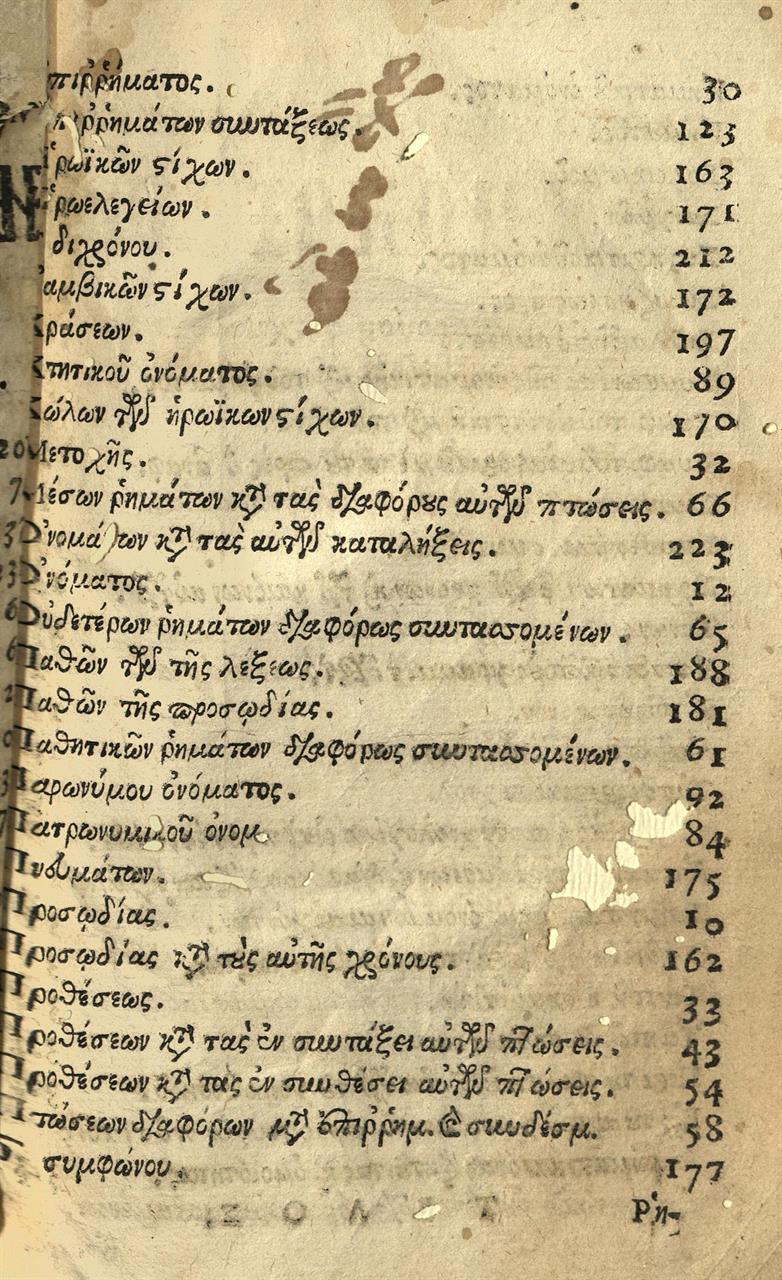 πιῤῥήματος. 30
πιῤῥημάτων συντάξεως. 123
ρωϊκῶν ϛίχων. 163
ρωελεγείων. 171
διχρόνου. 212
αμβικῶν ϛίχων. 172
Κράσεων. 197
Κτητικοῦ ὀνόματος. 89
Κώλων τῶν ἡρωϊκων ϛίχων. 170
Μετοχῆς. 32
Μέσων ῥημάτων κτ̀ τας διαφόρȣς αὐτῶν πτώσεις. 66
Ὀνομάτων κτ̀ τας αὐτῶν καταλήξεις. 223
Ὀνόματος. 12
Οὐδετέρων ῥημάτων διαφόρως συντασσομένων. 65
Παθῶν τῶν τῆς λέξεως. 188
Παθῶν τῆς ϖροσῳδίας. 181
Παθητικῶν ῥημάτων διαφόρως συντασσομένων. 61
Παρωνύμου ὀνόματος. 92
Πατρωνυμικοῦ ὀνομ. 84
Πνευμάτων. 175
Προσῳδίας. 10
Προσῳδίας κτ̀ τȣς αὐτῆς χρόνους. 162
Προθέσεως. 33
Προθέσεων κτ̀ τας ἐν συντάξει αὐτῶν πτώσεις. 43
Προθέσεων κτ̀ τας ἐν συνθέσει αὐτῶν πτώσεις. 54
Πτώσεων διαφόρων μτ̀ ἐπιῤῥημ. & συνδέσμ. 58
συμφώνου. 177
Ρή-